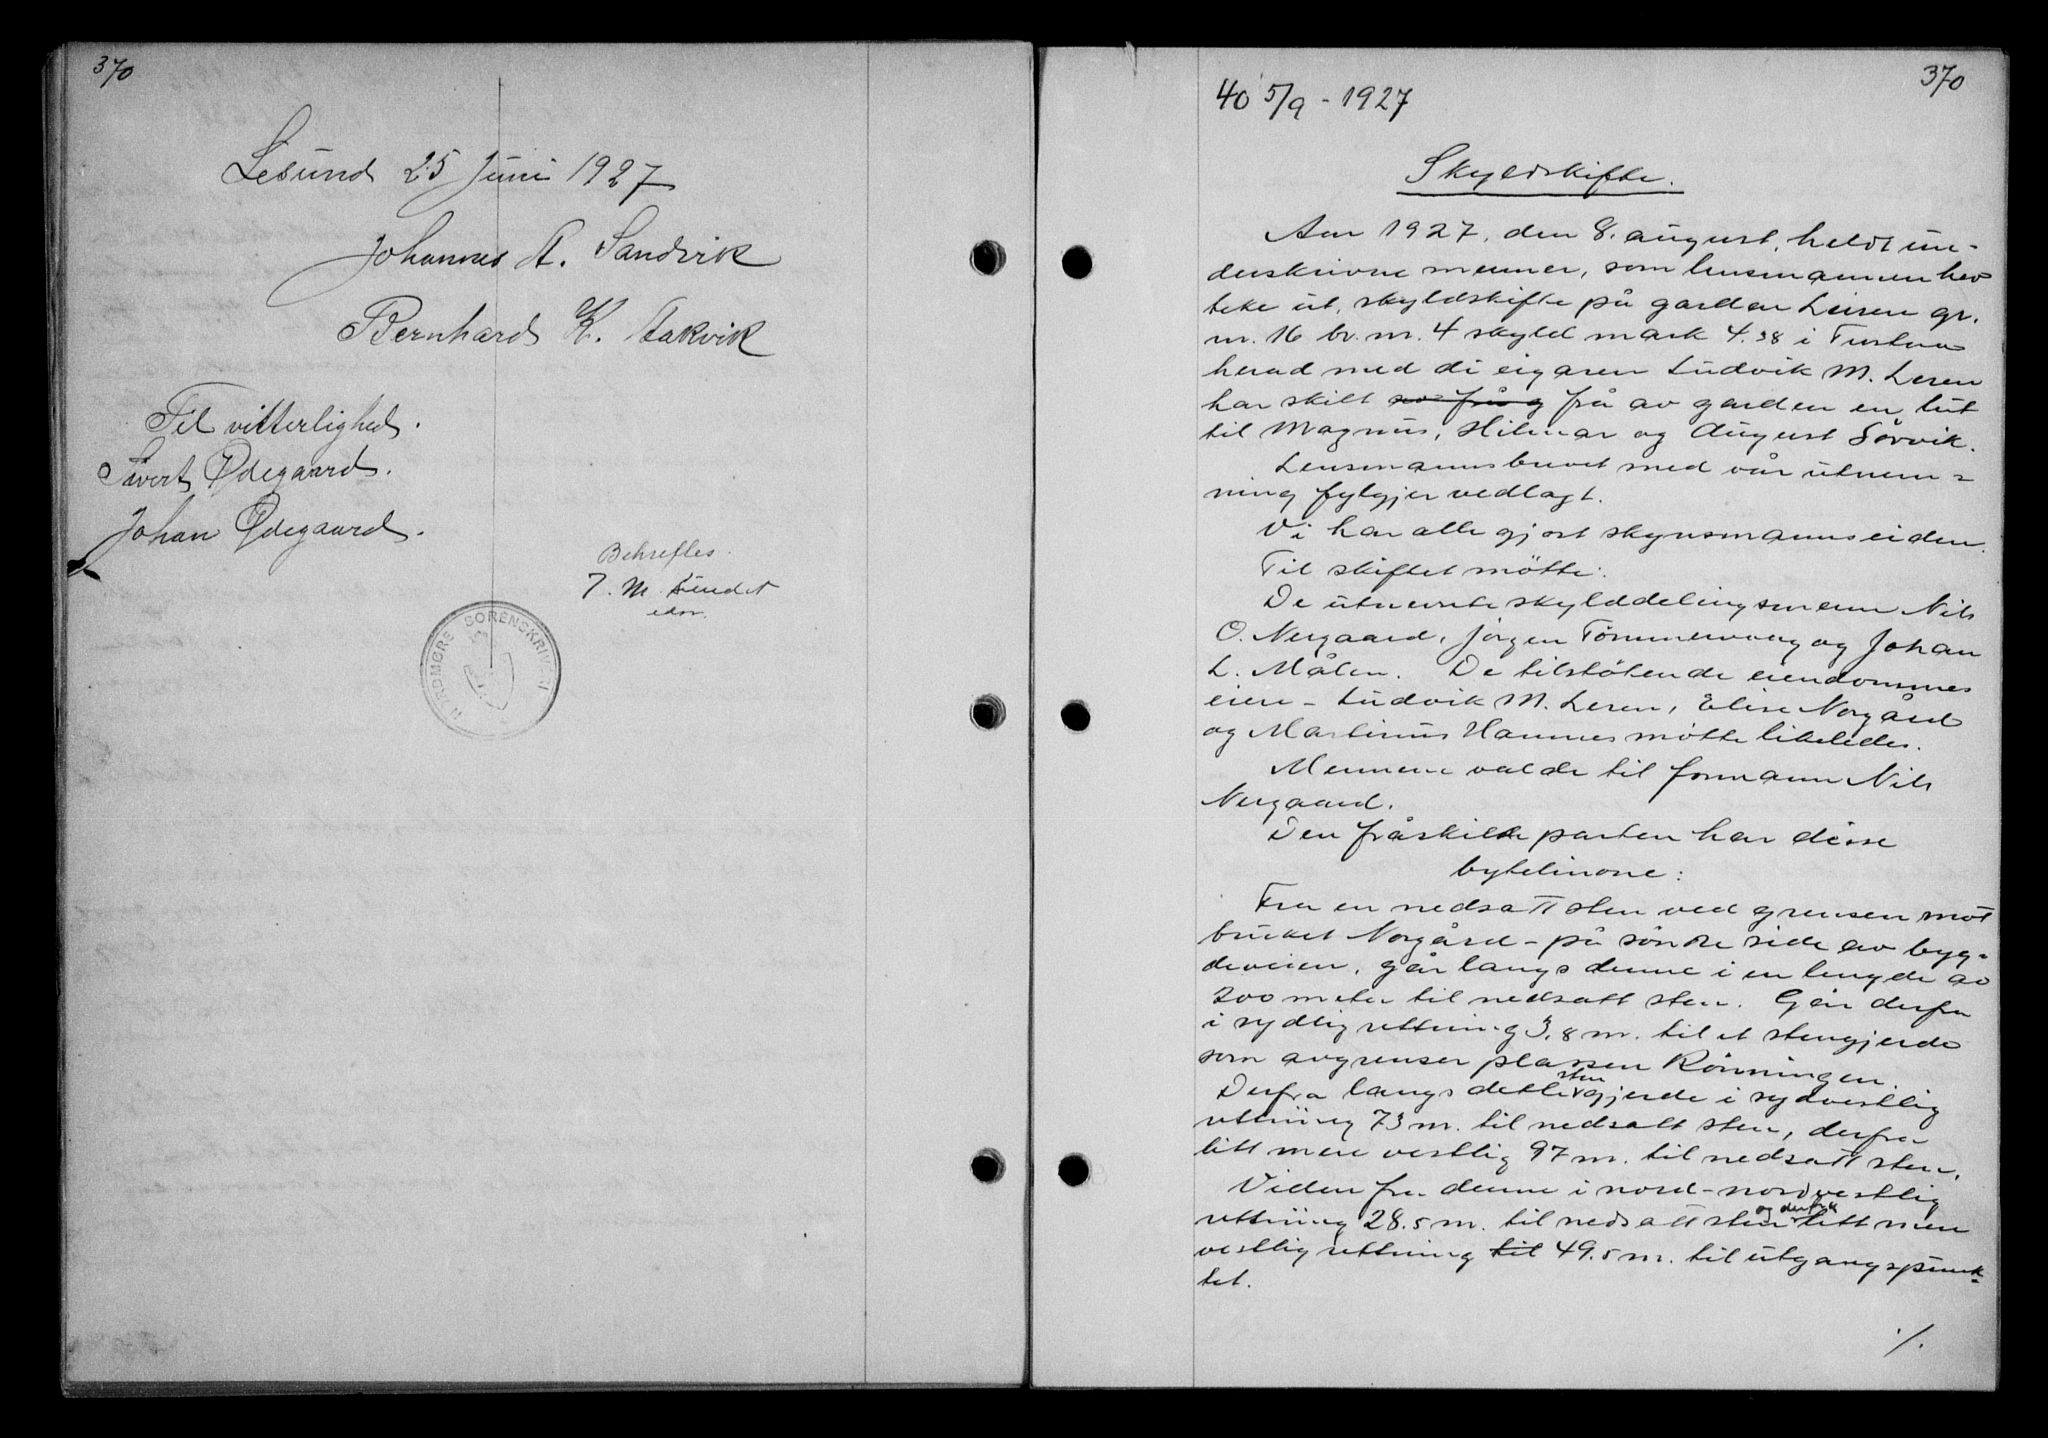 370
Lesund 25 Juni 1927
Johannes A. Sandvik
Bernhard K. Aakvik
Til vitterlighed.
Sivert Ødegaard.
Johan Ødegaard.
Bekreftes.
T. M. Sundet
edsv.
NORDMØRE SORENSKRIVERI
370
40 5/9 - 1927
Skyldskifte.
Aar 1927, den 8. august, heldt un-
derskrivne menner, som lensmannen hev
teke ut, skyldskifte på garden Leren gr.
nr. 16 br. nr. 4 skyld mark 4.38 i Tustna
herad med di eigaren Ludvik M. Leren
har skilt frå av garden en lut
til Magnus, Hilmar og August Sørvik.
Lensmannsbrevet med vår utnem-
ning fylgjer vedlagt.
Vi har alle gjort skynsmannseiden.
Til skiftet møtte:
De utnevnte skylddelingsmenn Nils
O. Nergaard, Jørgen Tømmervaag og Johan
L. Målen. De tilstøtende eiendommes
eiere - Ludvik M. Leren, Elise Norgård
og Martinus Hamnes møtte likeledes.
Mennene valde til formann Nils
Nergaard.
Den fråskilde parten har disse
bytelinone:
Fra en nedsatt sten ved grensen mot
bruket Norgård - på søndre side av byg-
deveien, går langs denne i en lengde av
200 meter til nedsatt sten. Går derfra
i sydlig retning 3,8 m. til et stengjerde
som avgrenser plassen Rønningen.
Derfra langs dette stengjerde i sydvestlig
retning 73 m. til nedsatt sten, derfra
litt mere vestlig 97 m. til nedsatt sten.
Viden fra denne i nord-nordvestlig
retning 28.5 m. til nedsatt sten og derfra litt mere
vestlig retning til 49.5 m. til utgangspunk-
tet.
./.